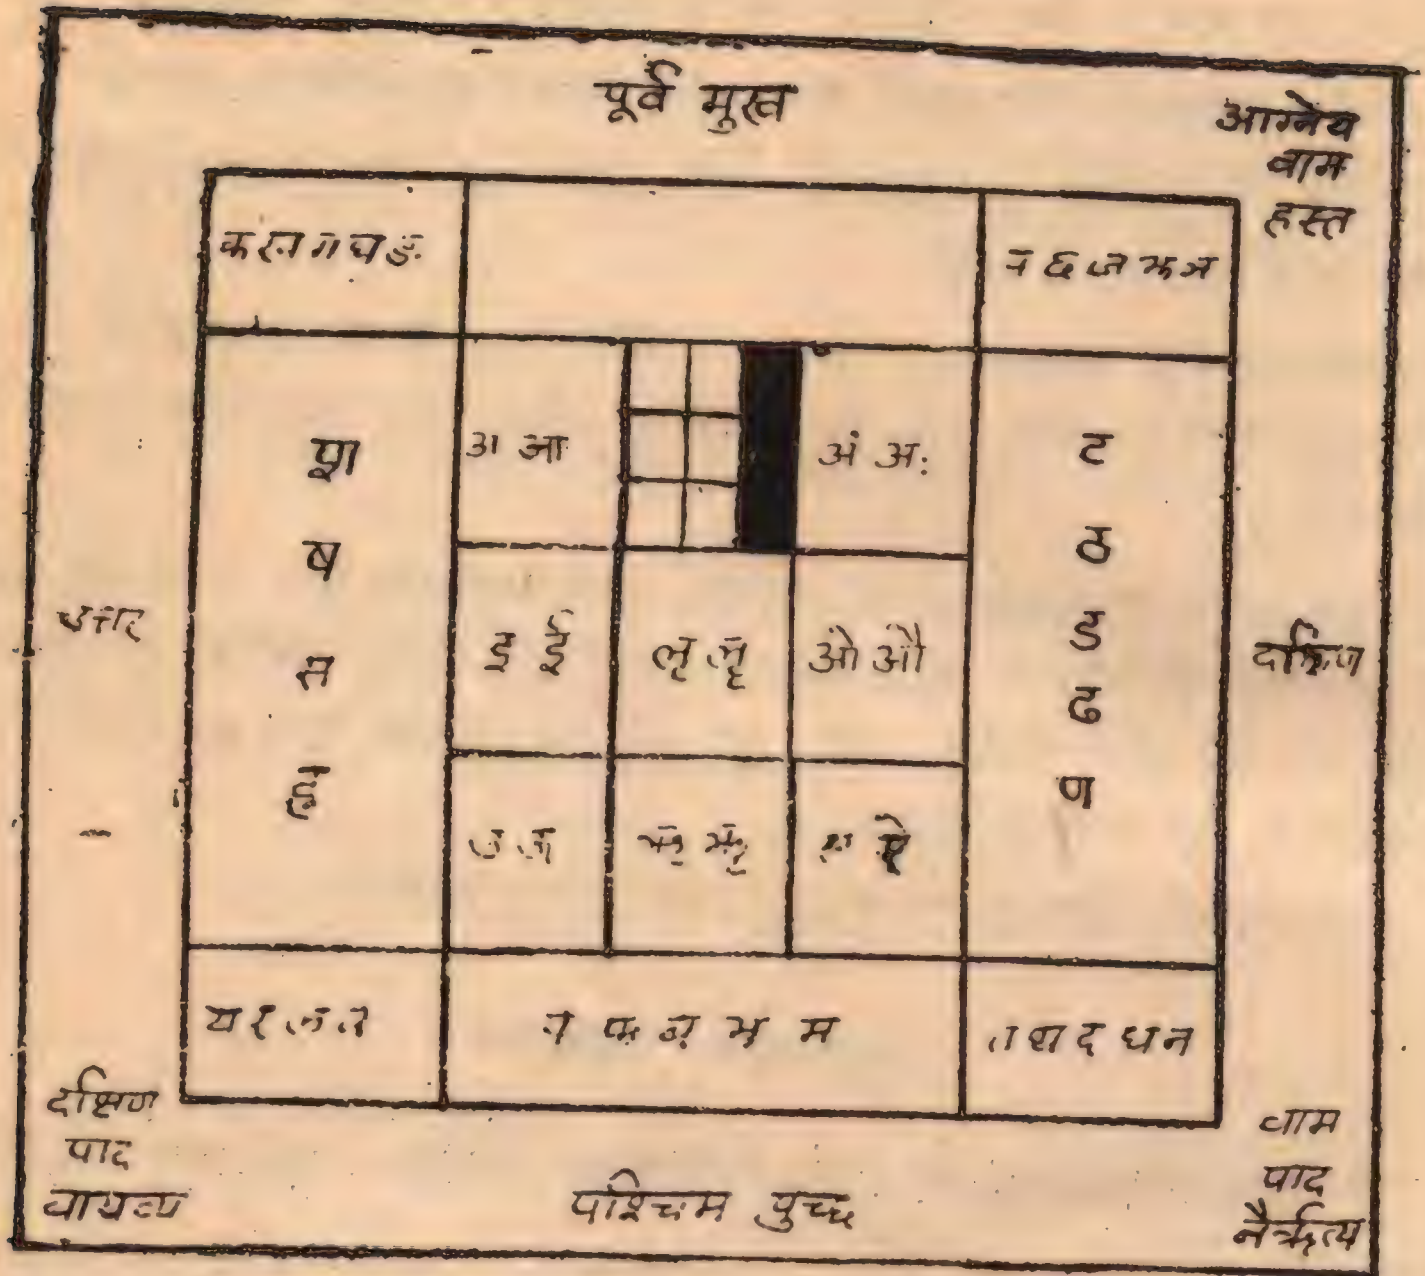 पूर्व मुख
आग्नेय
वाम
हस्त
क ख ग घ ङ
छ ज झ ञ
श
ष
स
ह
अ आ
अं अः
ट
ठ
ड
ढ
ण
उत्तर
इ ई
लृ लॄ
ओ औ
दक्षिण
उ ऊ
ऋ ॠ
ऐ
य र ल व
फ ब भ म
त थ द ध न
दक्षिण
पाद
वायव्य
पश्चिम पुच्छ
वाम
पाद
नैर्ऋत्य